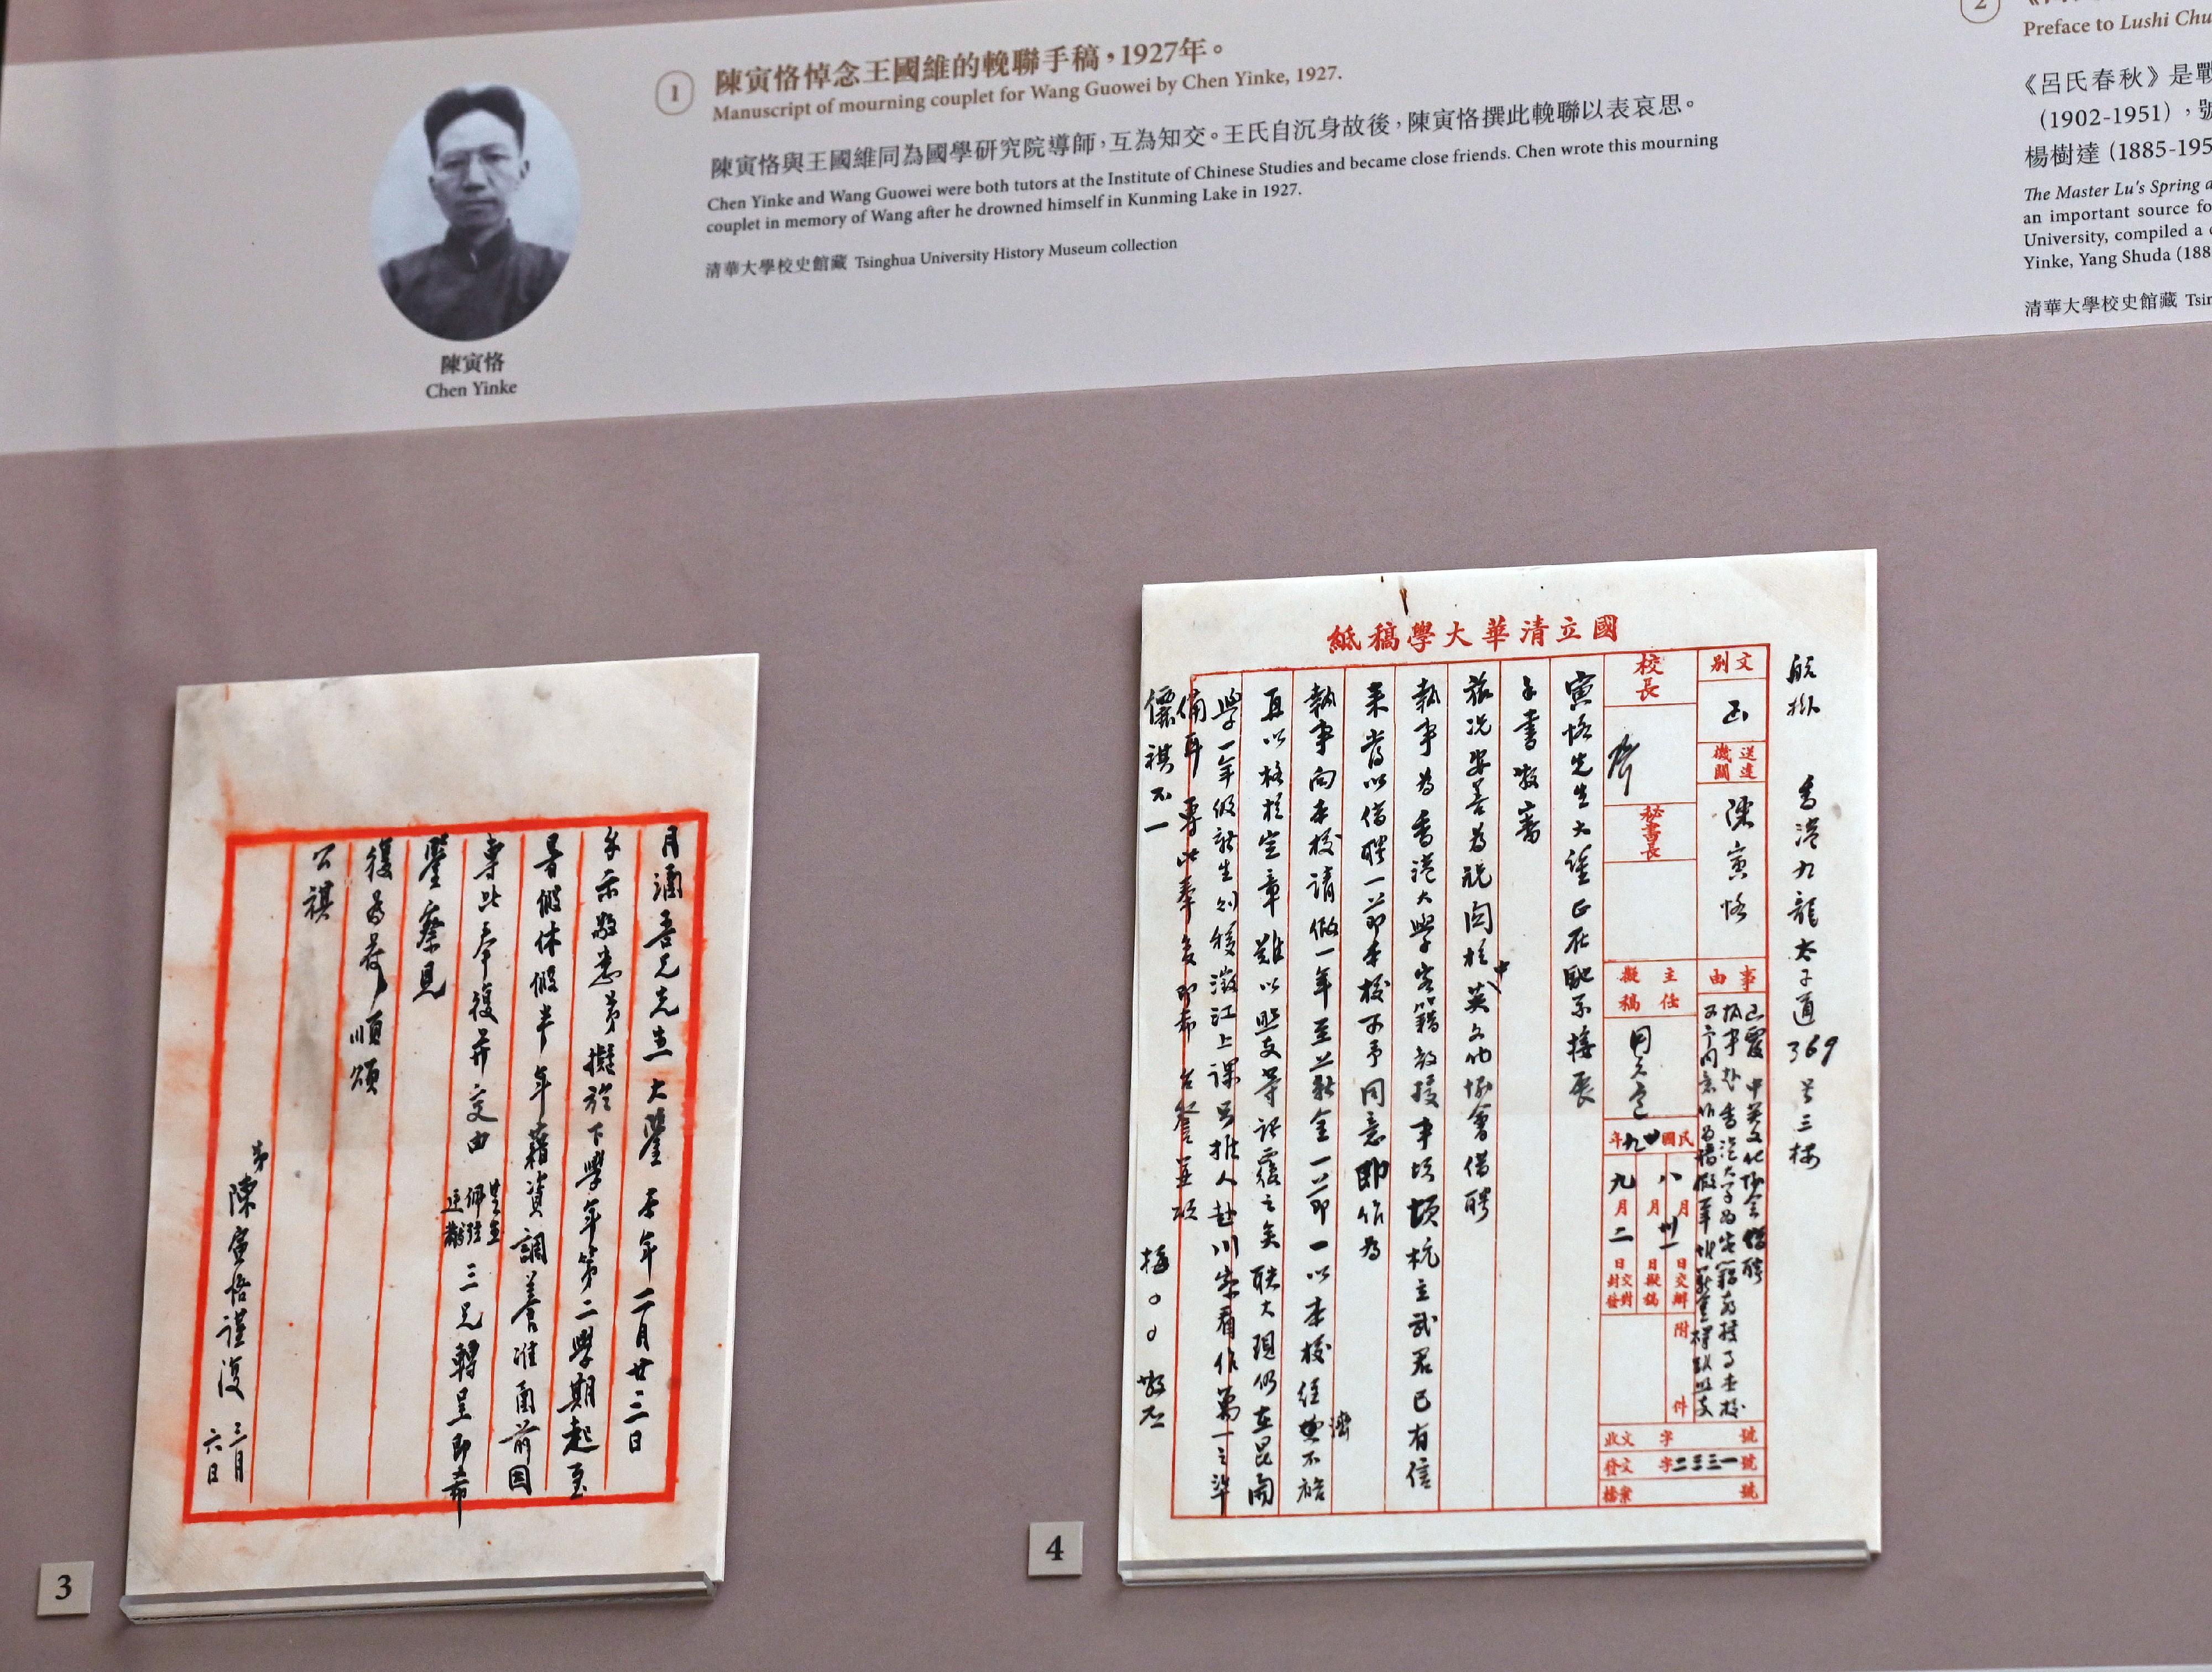 1
陳寅恪悼念王國維的輓聯手稿，1927年。
Manuscript of mourning couplet for Wang Guowei by Chen Yinke, 1927.
陳寅恪與王國維同為國學研究院導師，互為知交。王氏自沉身故後，陳寅恪撰此輓聯以表哀思。
Chen Yinke and Wang Guowei were both tutors at the Institute of Chinese Studies and became close friends. Chen wrote this mourning
couplet in memory of Wang after he drowned himself in Kunming Lake in 1927.
清華大學校史館藏 Tsinghua University History Museum collection
陳寅恪
Chen Yinke
2
Preface to Lushi Chu
《呂氏春秋》是戰
（1902-1951），號
楊樹達（1885-195
The Master Lu's Spring a
an important source fo
University, compiled a
Yinke, Yang Shuda (188
清華大學校史館藏 Tsin
月涵吾兄先生大鑒 本年二月廿三日
手示敬悉弟擬於下學年第二學期起至
暑假休假半年藉資調養准函前因
專此奉復并交由 三兄轉呈即希
鑒察見
復為荷順頌
公祺
弟陳寅恪謹復 三月六日
3
國立清華大學稿紙
香港九龍太子道369號三樓
文別 函
送達機關 陳寅恪
事由
校長
秘書長
主任擬稿
民國廿九年
八月廿一日交辦
月 日擬稿
九月二日
附件
收文 字 號
發文 字二三三一號
檔案 號
寅恪先生大鑒正在馳系接展
手書敬審
旅況安善為祝關於中英文化協會借聘
執事為香港大學客籍教授事項頃杭立武君已有信
來嘗以借聘一節本校不予同意即作為
執事向本校請假一年至薪金一節一以本校經濟不裕
再以格於定章難以照支等語覆之矣聯大現仍在昆開
學一年級新生則移澂江上課另推人赴川察看作萬一之準
備耳 專此奉復即希 台詧並頌
儷祺不一
梅○○敬啟
4